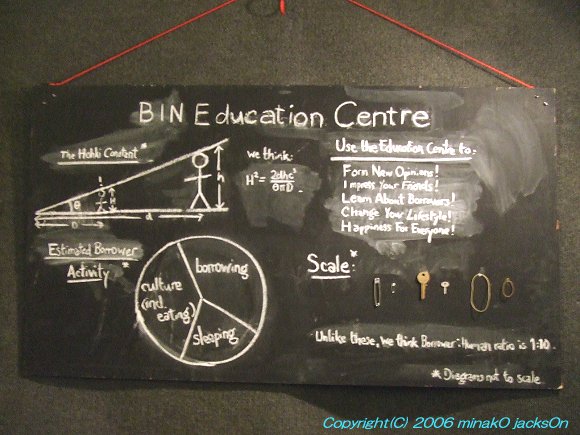 BIN Education Centre
The Hohki Constant*
we think:
H² = 2dhc² / θπD
θ
H
h
D
d
Use the Education Centre to:
Form New Opinions!
Impress Your Friends!
Learn About Borrowers!
Change Your Lifestyle!
Happiness For Everyone!
Estimated Borrower
Activity*
borrowing
culture
(incl.
eating)
sleeping
Scale*:
Unlike these, we think Borrower:Human ratio is 1:10.
* Diagrams not to scale
Copyright(C) 2006 minakO jacksOn